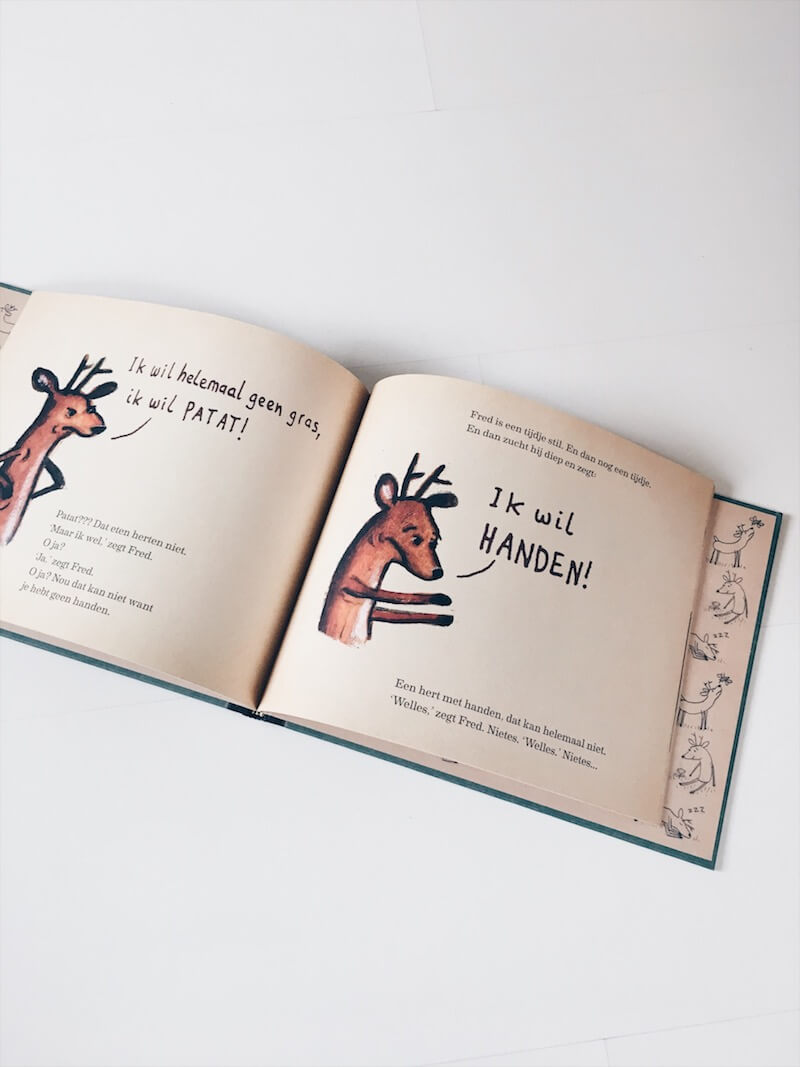 Ik wil helemaal geen gras,
ik wil PATAT!
Patat??? Dat eten herten niet.
'Maar ik wel,' zegt Fred.
O ja?
'Ja,' zegt Fred.
O ja? Nou dat kan niet want
je hebt geen handen.
Fred is een tijdje stil. En dan nog een tijdje.
En dan zucht hij diep en zegt:
Ik wil
HANDEN!
Een hert met handen, dat kan helemaal niet.
'Welles,' zegt Fred. Nietes. 'Welles.' Nietes...
zzz
zzz